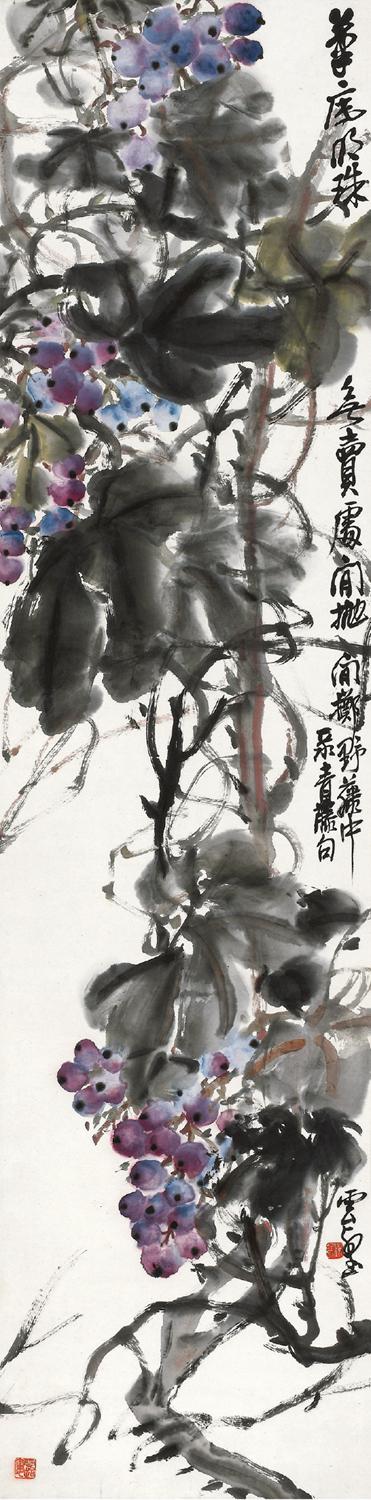 笔底明珠
無賣處閒抛閒擲野藤中
录青藤句